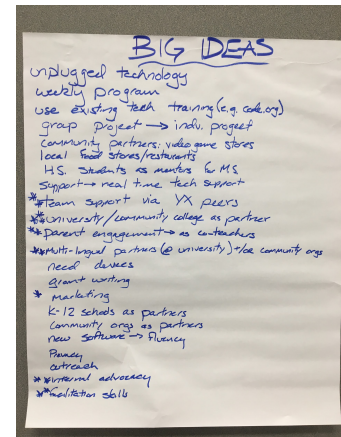 BIG IDEAS
unplugged technology
weekly program
use existing tech training (e.g. code.org)
group project → indv. project
community partners: video game stores
local food stores/restaurants
H.S. students as mentors for M.S.
Support → real time tech support
**team support via YX peers
**university/community college as partner
**parent engagement → as coteachers
**Multi-lingual partners (@ university) +/or community orgs
need devices
grant writing
* marketing
K-12 schools as partners
Community orgs as partners
new software → fluency
Privacy
outreach
**internal advocacy
**facilitation skills